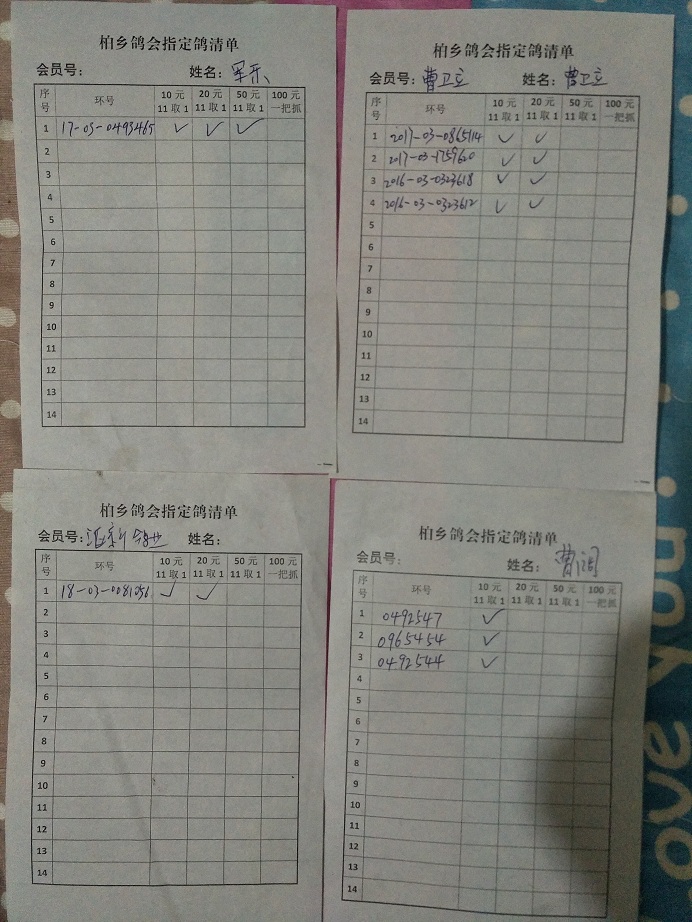 柏乡鸽会指定鸽清单
会员号: 姓名: 军乐
序号 环号 10 元 11 取 1 20 元 11 取 1 50 元 11 取 1 100 元 一把抓
1 17-03-0493465 ✓ ✓ ✓
2
3
4
5
6
7
8
9
10
11
12
13
14
柏乡鸽会指定鸽清单
会员号: 曹卫立 姓名: 曹卫立
序号 环号 10 元 11 取 1 20 元 11 取 1 50 元 11 取 1 100 元 一把抓
1 2017-03-0865114 ✓ ✓
2 2017-03-1759620 ✓ ✓
3 2016-03-0323618 ✓ ✓
4 2016-03-0323612 ✓ ✓
5
6
7
8
9
10
11
12
13
14
柏乡鸽会指定鸽清单
会员号: 姓名:
序号 环号 10 元 11 取 1 20 元 11 取 1 50 元 11 取 1 100 元 一把抓
1 18-03-0081056 ✓ ✓
2
3
4
5
6
7
8
9
10
11
12
13
14
柏乡鸽会指定鸽清单
会员号: 姓名: 曹润
序号 环号 10 元 11 取 1 20 元 11 取 1 50 元 11 取 1 100 元 一把抓
1 0492547 ✓
2 0965454 ✓
3 0492544 ✓
4
5
6
7
8
9
10
11
12
13
14
ove you